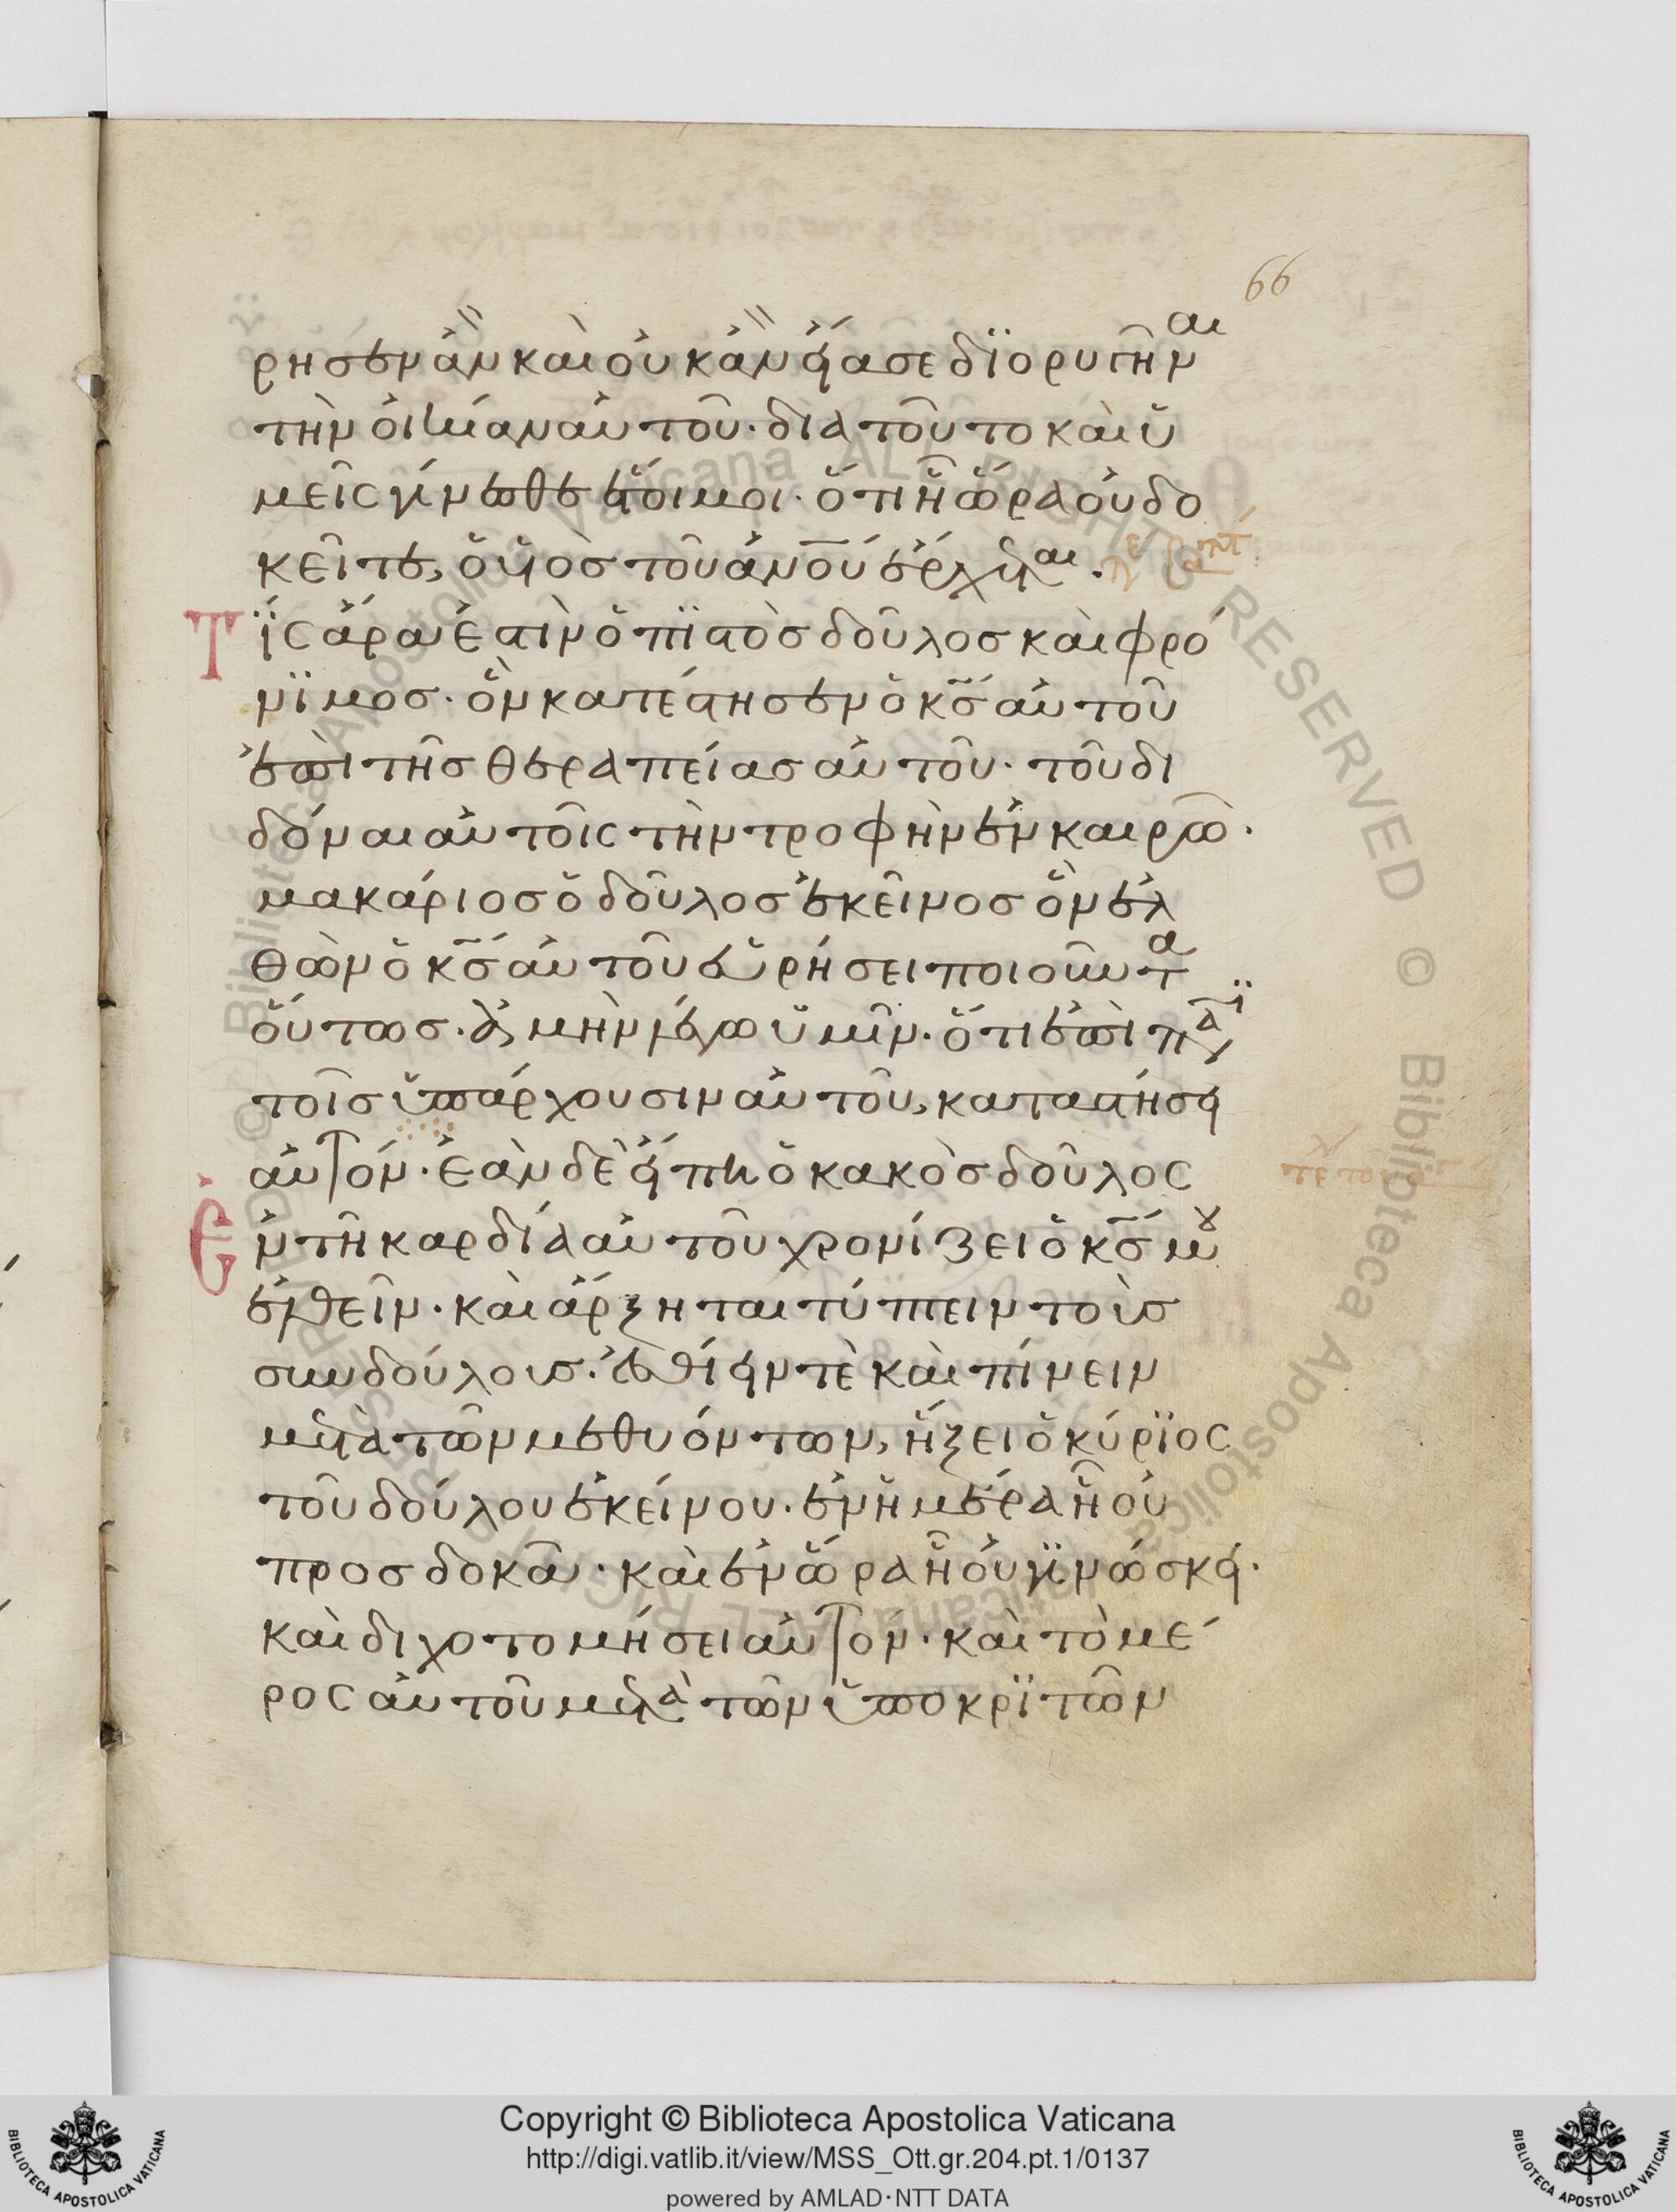 66
ρησεν ἂν καὶ οὐκ ἂν εἴασε δϊορυγῆναι
τὴν οἰκίαν αὐτοῦ· διὰ τοῦτο καὶ ὑ
μεῖς γίνεσθε ἕτοιμοι· ὅτι ἧ ὥρα οὐ δο
κεῖτε, ὁ υἱὸσ τοῦ ἀνου ἔρχεται.
Τΐς ἄρα ἐστὶν ὁ πϊστὸσ δοῦλοσ καὶ φρό
νϊμοσ· ὃν κατέστησεν ὁ κσ αὐτοῦ
ἐπὶ τῆσ θεραπείασ αὐτοῦ· τοῦ δι
δόναι αὐτοῖς τὴν τροφὴν ἐν καιρῶ·
μακάριοσ ὁ δοῦλοσ ἐκεῖνοσ ὃν ἐλ
θὼν ὁ κσ αὐτοῦ εὑρήσει ποιοῦντα
οὕτωσ· ἀμὴν λέγω ὑμῖν· ὅτι ἐπὶ πᾶσϊ
τοῖσ ὑπάρχουσιν αὐτοῦ, καταστήσει
αὐτόν· ἐὰν δὲ εἴπη ὁ κακὸσ δοῦλος
Ἐν τῆ καρδία αὐτοῦ χρονίζει ὁ κσ μου
ἐλθεῖν· καὶ ἄρξηται τύπτειν τοὺσ
συνδούλουσ· ἐσθίειν τὲ καὶ πίνειν
μετὰ τῶν μεθυόντων, ἥξει ὁ κύρϊος
τοῦ δούλου ἐκείνου· ἐν ἡμέρα ἧ οὐ
προσδοκᾶ· καὶ ἐν ὥρα ἧ οὐ γϊνώσκει·
καὶ διχοτομήσει αὐτόν· καὶ τὸ μέ
ρος αὐτοῦ μετὰ τῶν ὑποκρϊτῶν
Copyright © Biblioteca Apostolica Vaticana
http://digi.vatlib.it/view/MSS_Ott.gr.204.pt.1/0137
powered by AMLAD·NTT DATA
BIBLIOTECA APOSTOLICA VATICANA
BIBLIOTECA APOSTOLICA VATICANA